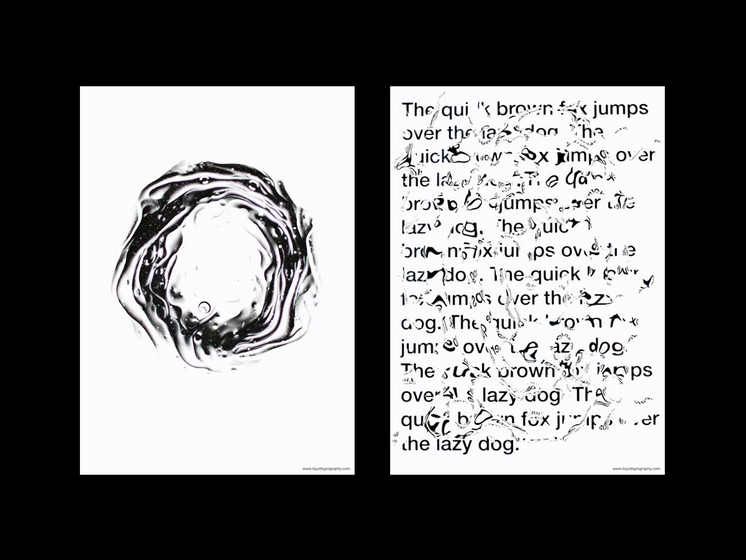 www.liquidtypography.com
The quick brown fox jumps
over the lazy dog. The
quick fox jumps over
the The quick
brown jumps over the
lazy dog. The quick
brown fox jumps over the
lazy dog. The quick
jumps over the lazy
dog. The quick brown fox
jumps over the lazy dog.
The quick brown fox jumps
over lazy dog. The
quick brown fox jumps over
the lazy dog.
www.liquidtypography.com